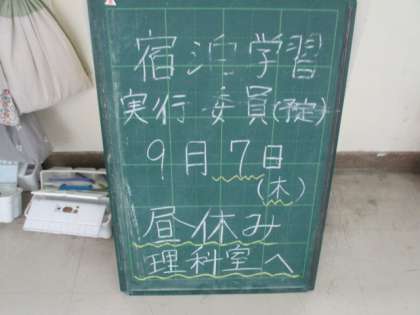 宿泊学習
実行委員(予定)
9月7日
(木)
昼休み
理科室へ